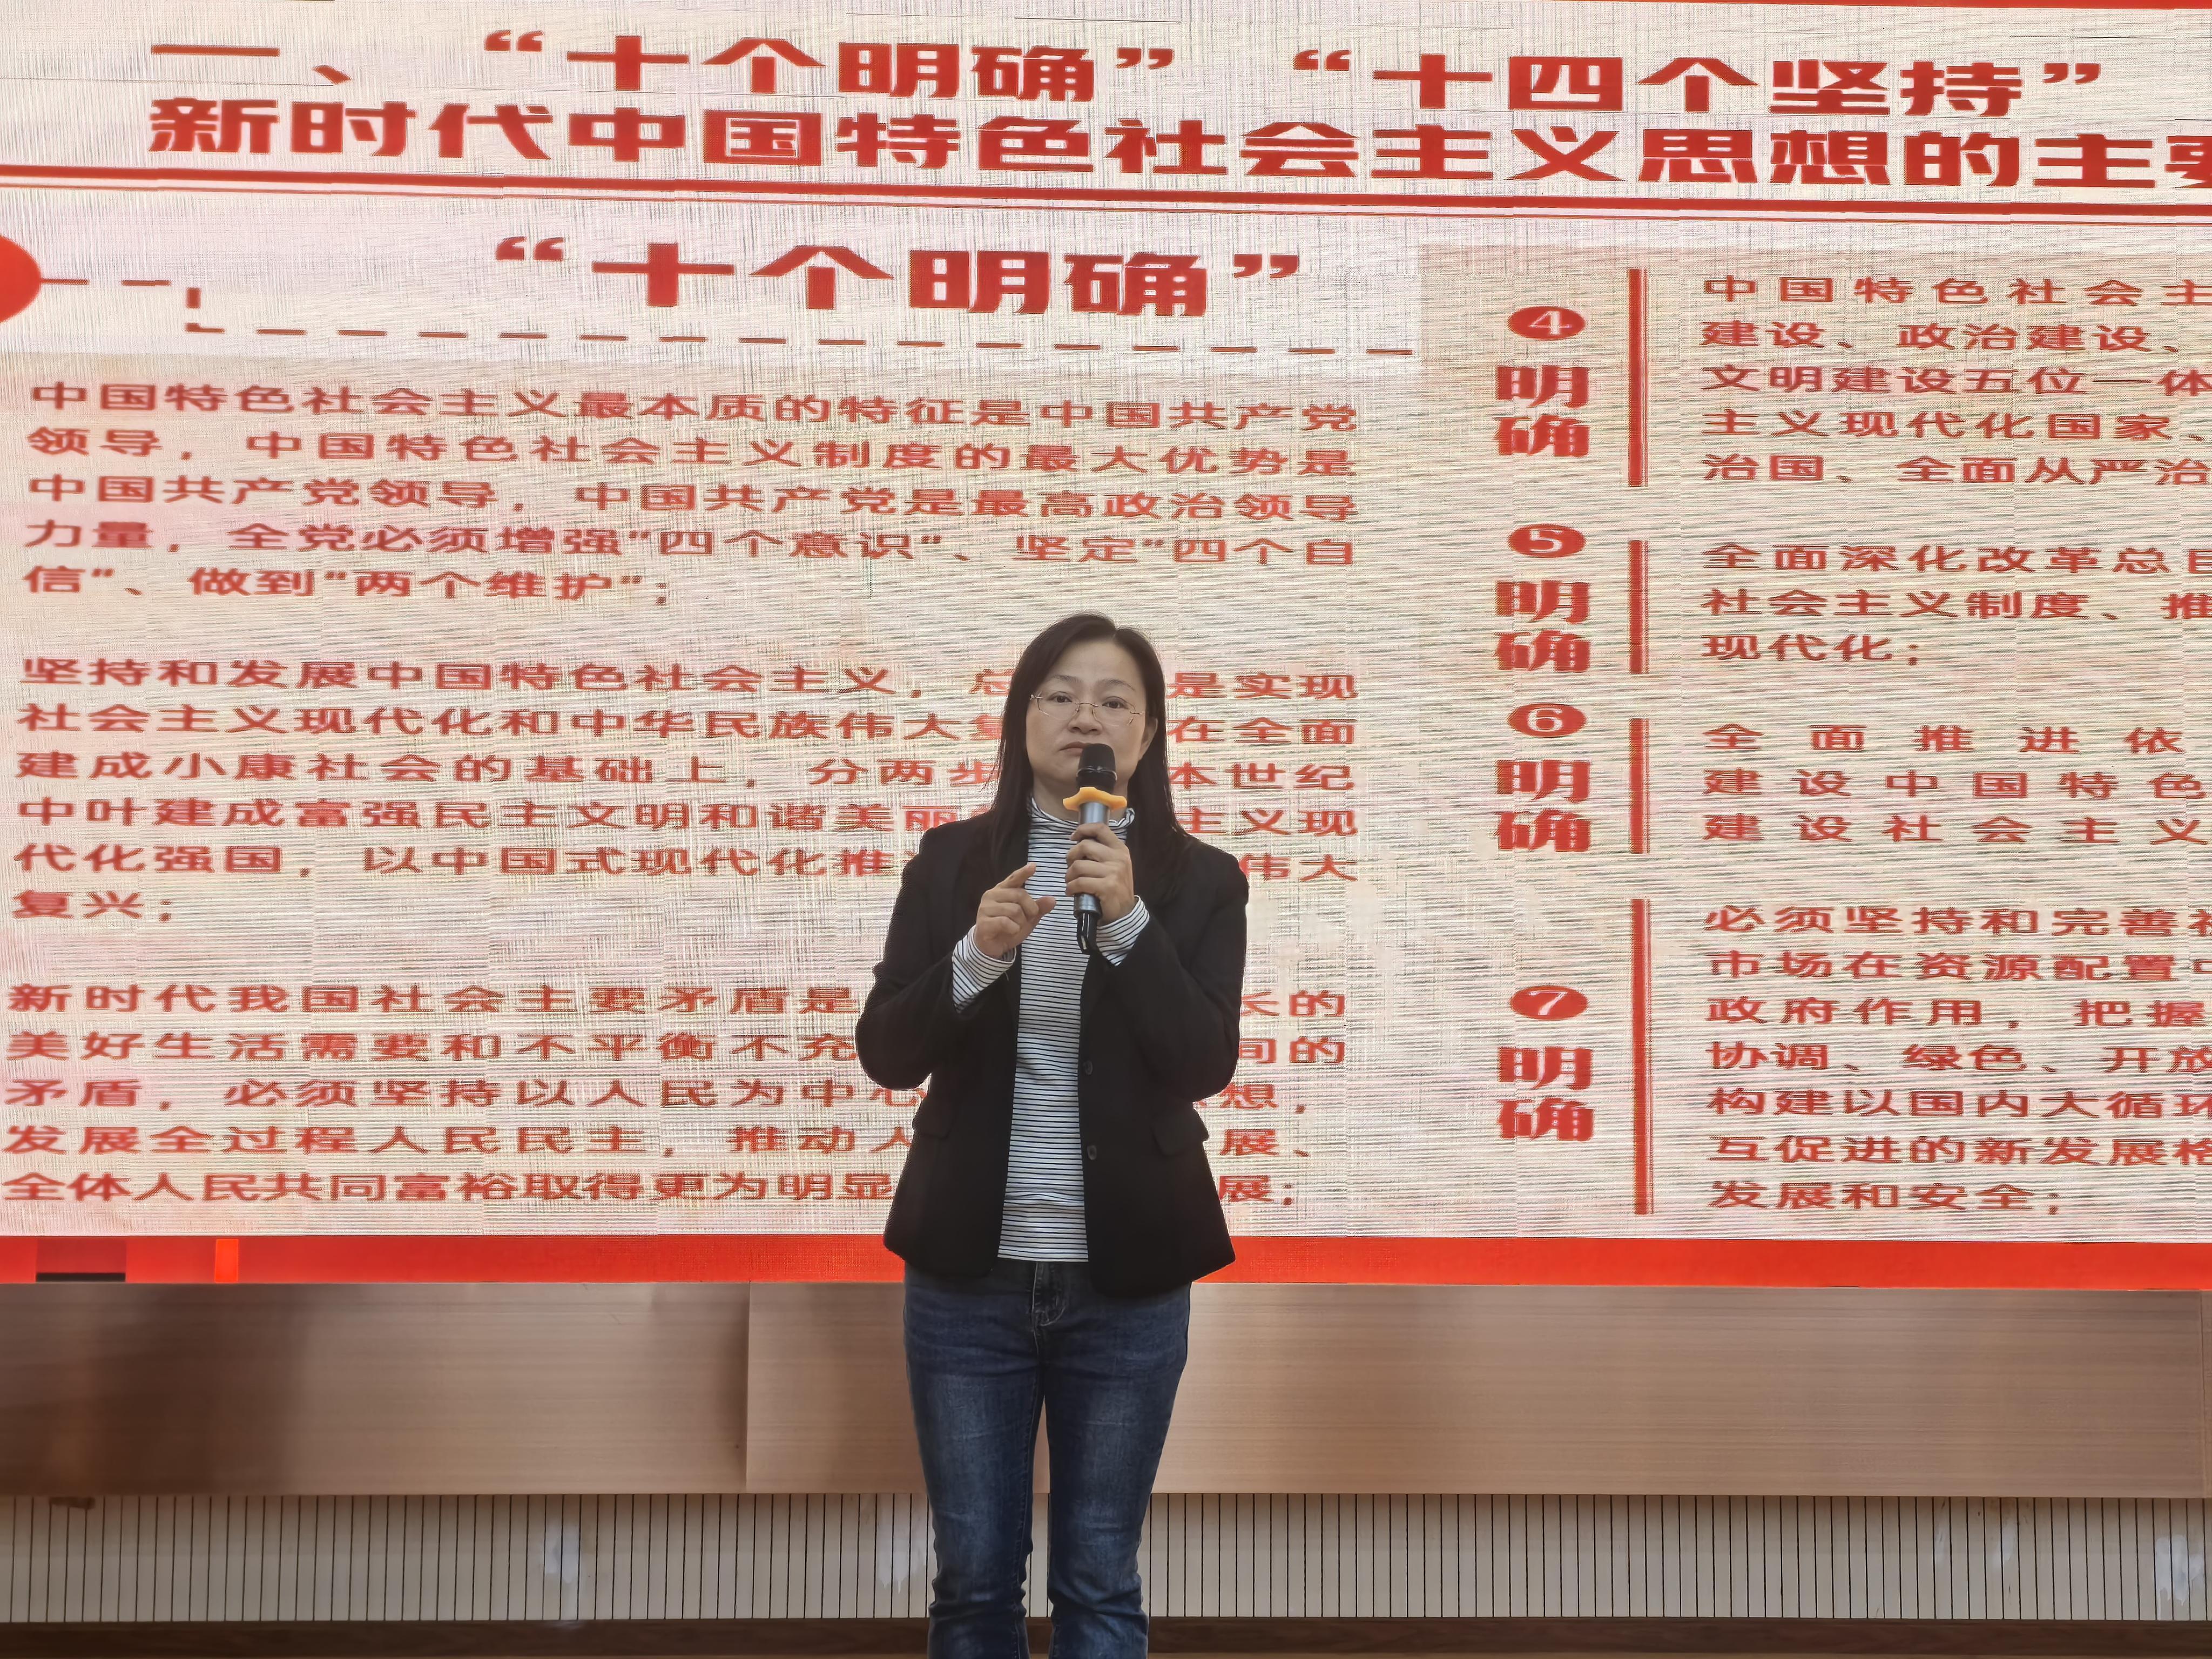 一、“十个明确” “十四个坚持”
新时代中国特色社会主义思想的主要
“十个明确”
中国特色社会主义最本质的特征是中国共产党
领导，中国特色社会主义制度的最大优势是
中国共产党领导，中国共产党是最高政治领导
力量，全党必须增强“四个意识”、坚定“四个自
信”、做到“两个维护”；
坚持和发展中国特色社会主义，总 是实现
社会主义现代化和中华民族伟大复 在全面
建成小康社会的基础上，分两步 本世纪
中叶建成富强民主文明和谐美丽 主义现
代化强国，以中国式现代化推 伟大
复兴；
新时代我国社会主要矛盾是 长的
美好生活需要和不平衡不充 间的
矛盾，必须坚持以人民为中心 想，
发展全过程人民民主，推动人 展、
全体人民共同富裕取得更为明显 展；
4
明
确
中国特色社会主
建设、政治建设、
文明建设五位一体
主义现代化国家、
治国、全面从严治
5
明
确
全面深化改革总目
社会主义制度、推
现代化；
6
明
确
全面推进依
建设中国特色
建设社会主义
7
明
确
必须坚持和完善社
市场在资源配置中
政府作用，把握
协调、绿色、开放
构建以国内大循环
互促进的新发展格
发展和安全；